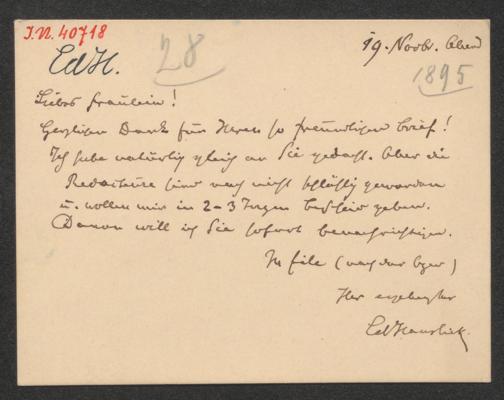 I.N. 40718
EdH.
28
19. Novbr. Abend
1895
Liebes Fräulein!
Herzlichen Dank für Ihren so freundlichen Brief!
Ich habe natürlich gleich an Sie gedacht. Aber die
Redacteure sind noch nicht schlüssig geworden
u. wollen mir in 2–3 Tagen Bescheid geben.
Davon will ich Sie sofort benachrichtigen.
In Eile (nach der Oper)
Ihr ergebenster
EdHanslick.